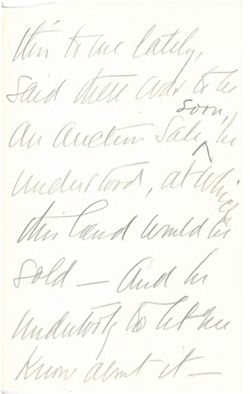 to me lately,
said there was to be
soon,
an auction sale, he
understood, at which
this land would be
sold — And he
undertook to let me
know about it —